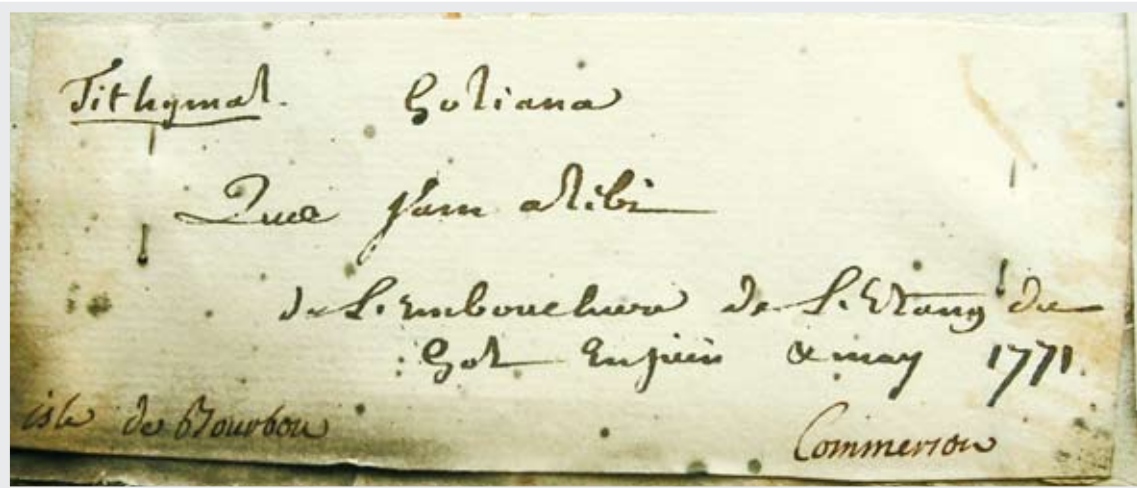 Tithymal. Goliana
Quæ jam alibi
de L'embouchure de L'Etang du
Gol En juin & may 1771.
isle de Bourbon Commerson